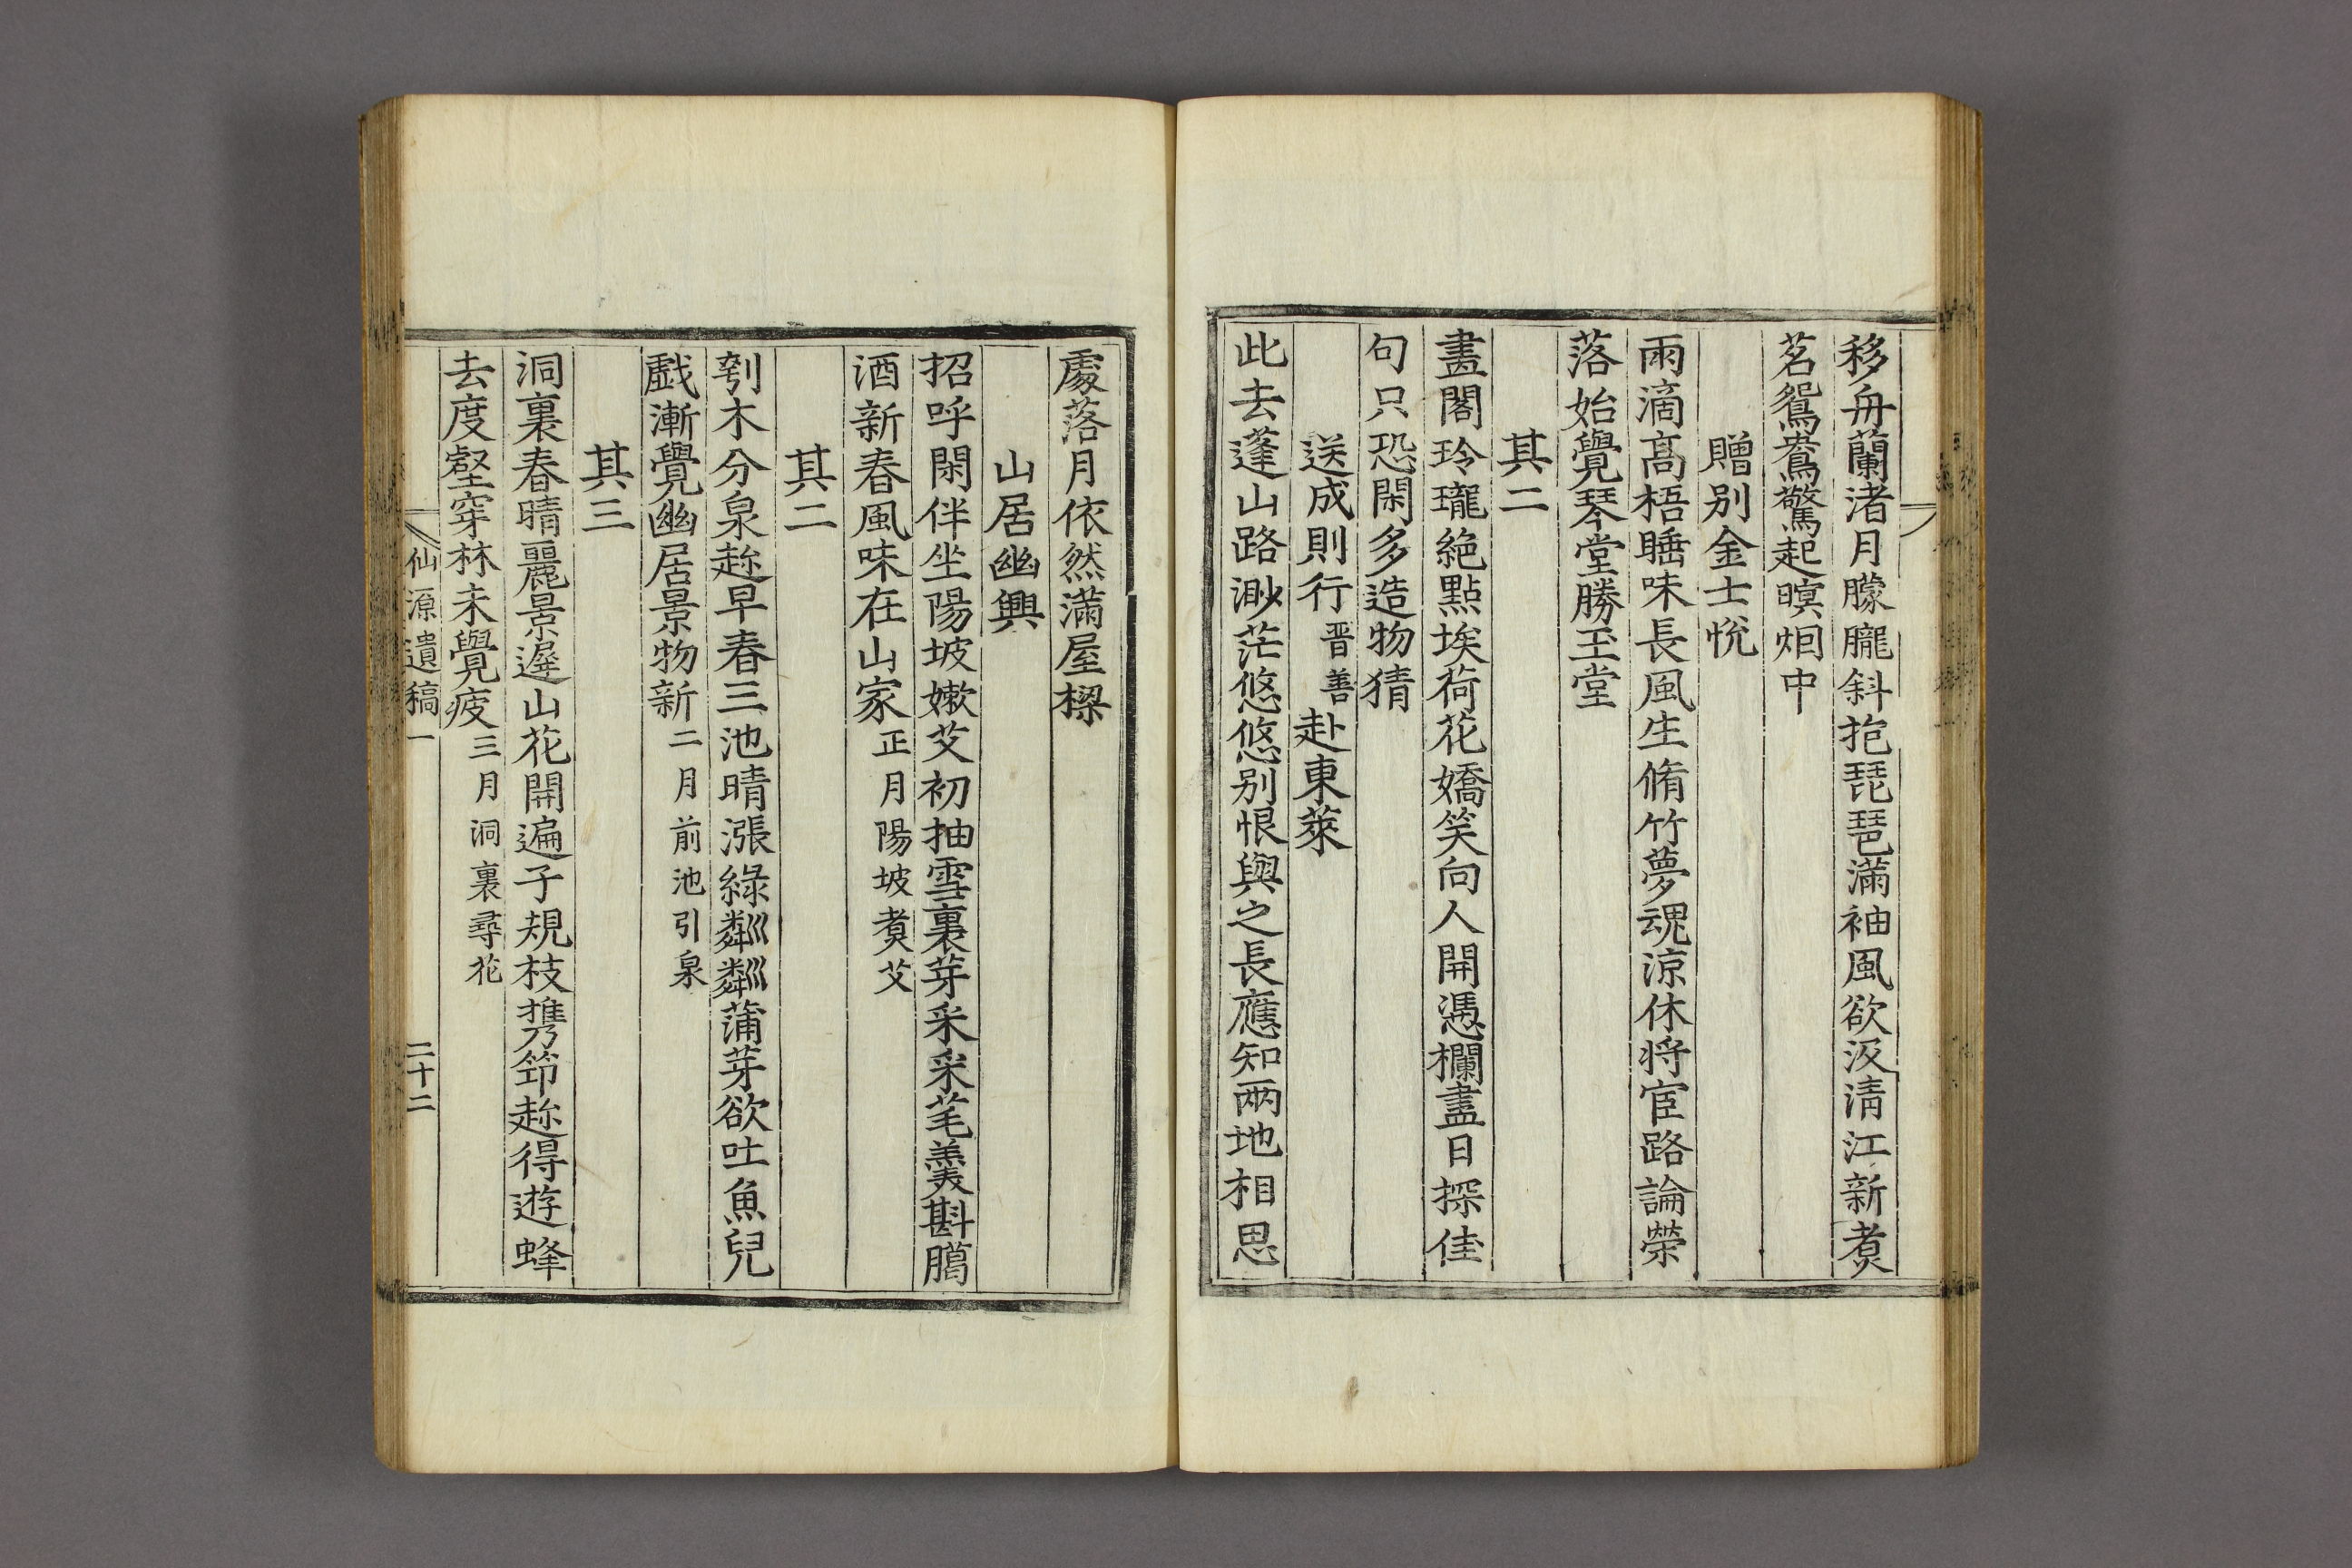 移舟蘭渚月朦朧斜抱琵琶滿袖風欲汲淸江新煑
茗鴛鴦驚起暝烟中
贈别金士恱
雨滴髙梧睡味長風生脩竹夢魂凉休將宦路論榮
落始覺琴堂勝玉堂
其二
畫閣玲瓏絶點埃荷花嬌笑向人開憑欄盡日探佳
句只恐閑多造物猜
送成則行晋善赴東萊
此去蓬山路渺茫悠悠别恨與之長應知兩地相思
處落月依然滿屋樑
山居幽興
招呼閑伴坐陽坡嫰艾初抽雪裏芽采采芼羹斟臈
酒新春風味在山家正月陽坡煑艾
其二
刳木分泉趂早春三池晴漲綠粼粼蒲芽欲吐魚兒
戱漸覺幽居景物新二月前池引泉
其三
洞裏春晴麗景遲山花開遍子規枝携笻趂得遊蜂
去度壑穿林未覺疲三月洞裏尋花
仙源遺稿一 二十二